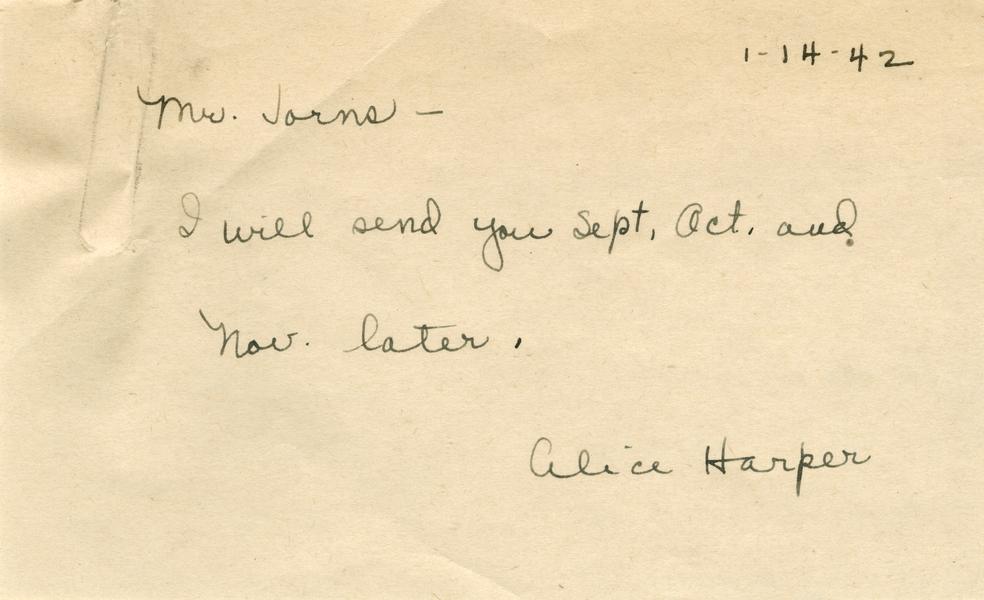 1-14-42
Mr. Jorns –
I will send you Sept, Oct. and
Nov. later.
Alice Harper